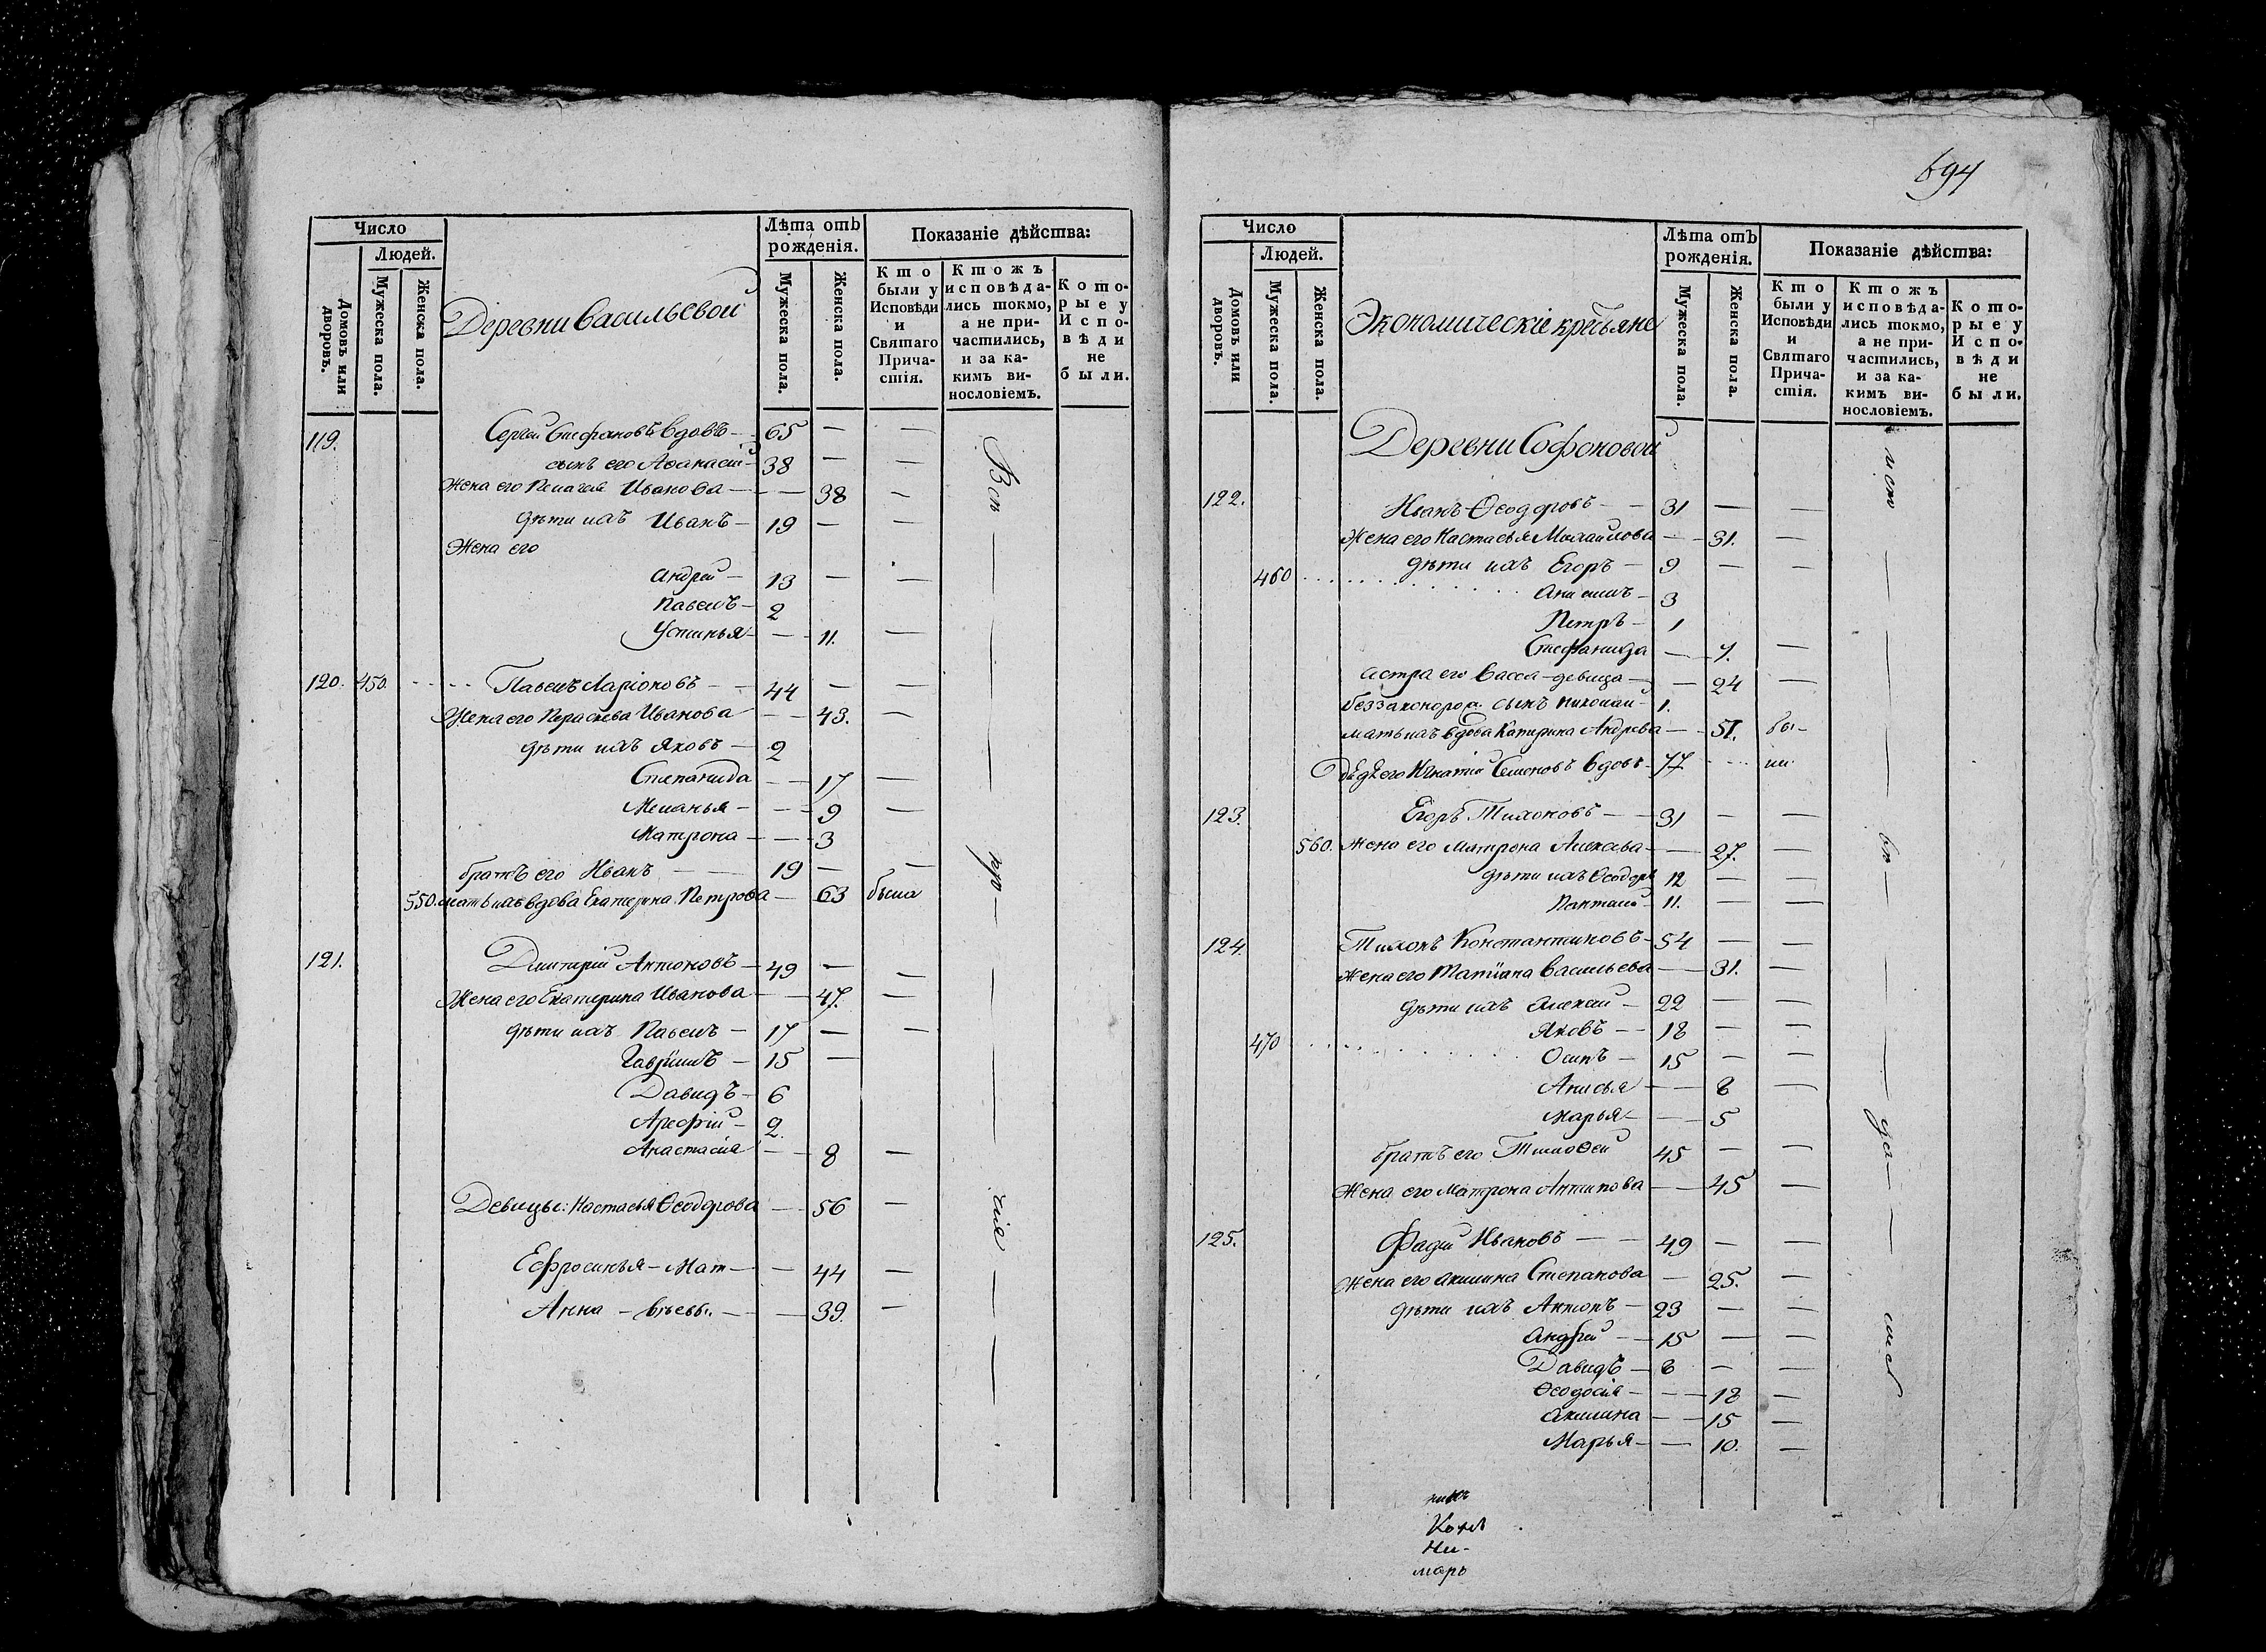 Число
Людей.
Домовъ или дворовъ.
Мужеска пола.
Женска пола.
Деревни Васильевой
Лѣта отъ рожденія.
Мужеска пола.
Женска пола.
Показаніе дѣйства:
Кто были у Исповѣди и Святаго Причастія.
Ктожъ исповѣдались токмо, а не причастились, и за какимъ винословіемъ.
Которые у Исповѣди не были.
119. Сергѣй Стефановъ вдовъ — 65 — —
сынъ его Аѳанасій — 38 — —
Жена его Пелагея Иванова — — 38 —
дѣти ихъ Иванъ — 19 — —
Жена его
Андрей — 13 — —
Павелъ — 2
Устинья — — 11. —
120. 450. Павелъ Ларіоновъ — — 44 — —
Жена его Параскева Иванова — — 43. —
дѣти ихъ Яковъ — 2
Степанида — — 17 —
Меланья — — — 9 —
Матрона — — — 3
братъ его Иванъ — — 19 — —
550. мать ихъ вдова Екатерина Петрова — 63 была
121. Дмитрій Антоновъ — 49 — —
Жена его Екатерина Иванова — — 47. —
дѣти ихъ Павелъ — 17 — —
Гаврiилъ — 15 —
Давидъ — 6
Арефій — 2.
Анастасія — — 8 —
Девицы: Настасья Ѳеодорова — 56 —
Ефросинья — Мат — — 44 —
Анна — вѣевы. — — 39. —
694
Число
Людей.
Домовъ или дворовъ.
Мужеска пола.
Женска пола.
Экономическіе крестьяне
Лѣта отъ рожденія.
Мужеска пола.
Женска пола.
Показаніе дѣйства:
Кто были у Исповѣди и Святаго Причастія.
Ктожъ исповѣдались токмо, а не причастились, и за какимъ винословіемъ.
Которые у Исповѣди не были.
Деревни Софоновой
122. Иванъ Ѳеодоровъ — — 31 — —
Жена его Настасья Михайлова — — 31. —
460 дѣти ихъ Егоръ — 9 — —
3
Петръ — 1
Стефанида — 7. —
сестра его Васса — девица — — 24 —
беззаконорож. сынъ Николай — 1.
мать ихъ вдова Катерина Андрева — — 51. бы-
Дѣдъ его Игнатій Семеновъ вдовъ — 77 — ли.
123. Егоръ Тихоновъ — — 31 — —
560. Жена его Матрона Алексѣва — — 27. —
дѣти ихъ Ѳеодоръ 12 — —
Пантелей — 11. — —
124. Тихонъ Константиновъ — 54 — —
Жена его Татiана Васильева — — 31. —
дѣти ихъ Алексѣй — 22 — —
470 Яковъ — — 18 — —
Осипъ — 15 — —
Анисья — — 8 —
Марья — — 5
братъ его Тимоѳей 45 — —
Жена его Матрона Антипова — — 45 —
125. Фадѣй Ивановъ — — 49 — —
Жена его Акилина Степанова — 25. —
дѣти ихъ Антонъ — 23 — —
Андрей — — 15 — —
Давидъ — 8 — —
Ѳеодосія — — — 18 —
Акилина — — 15 —
Марья — — 10. —